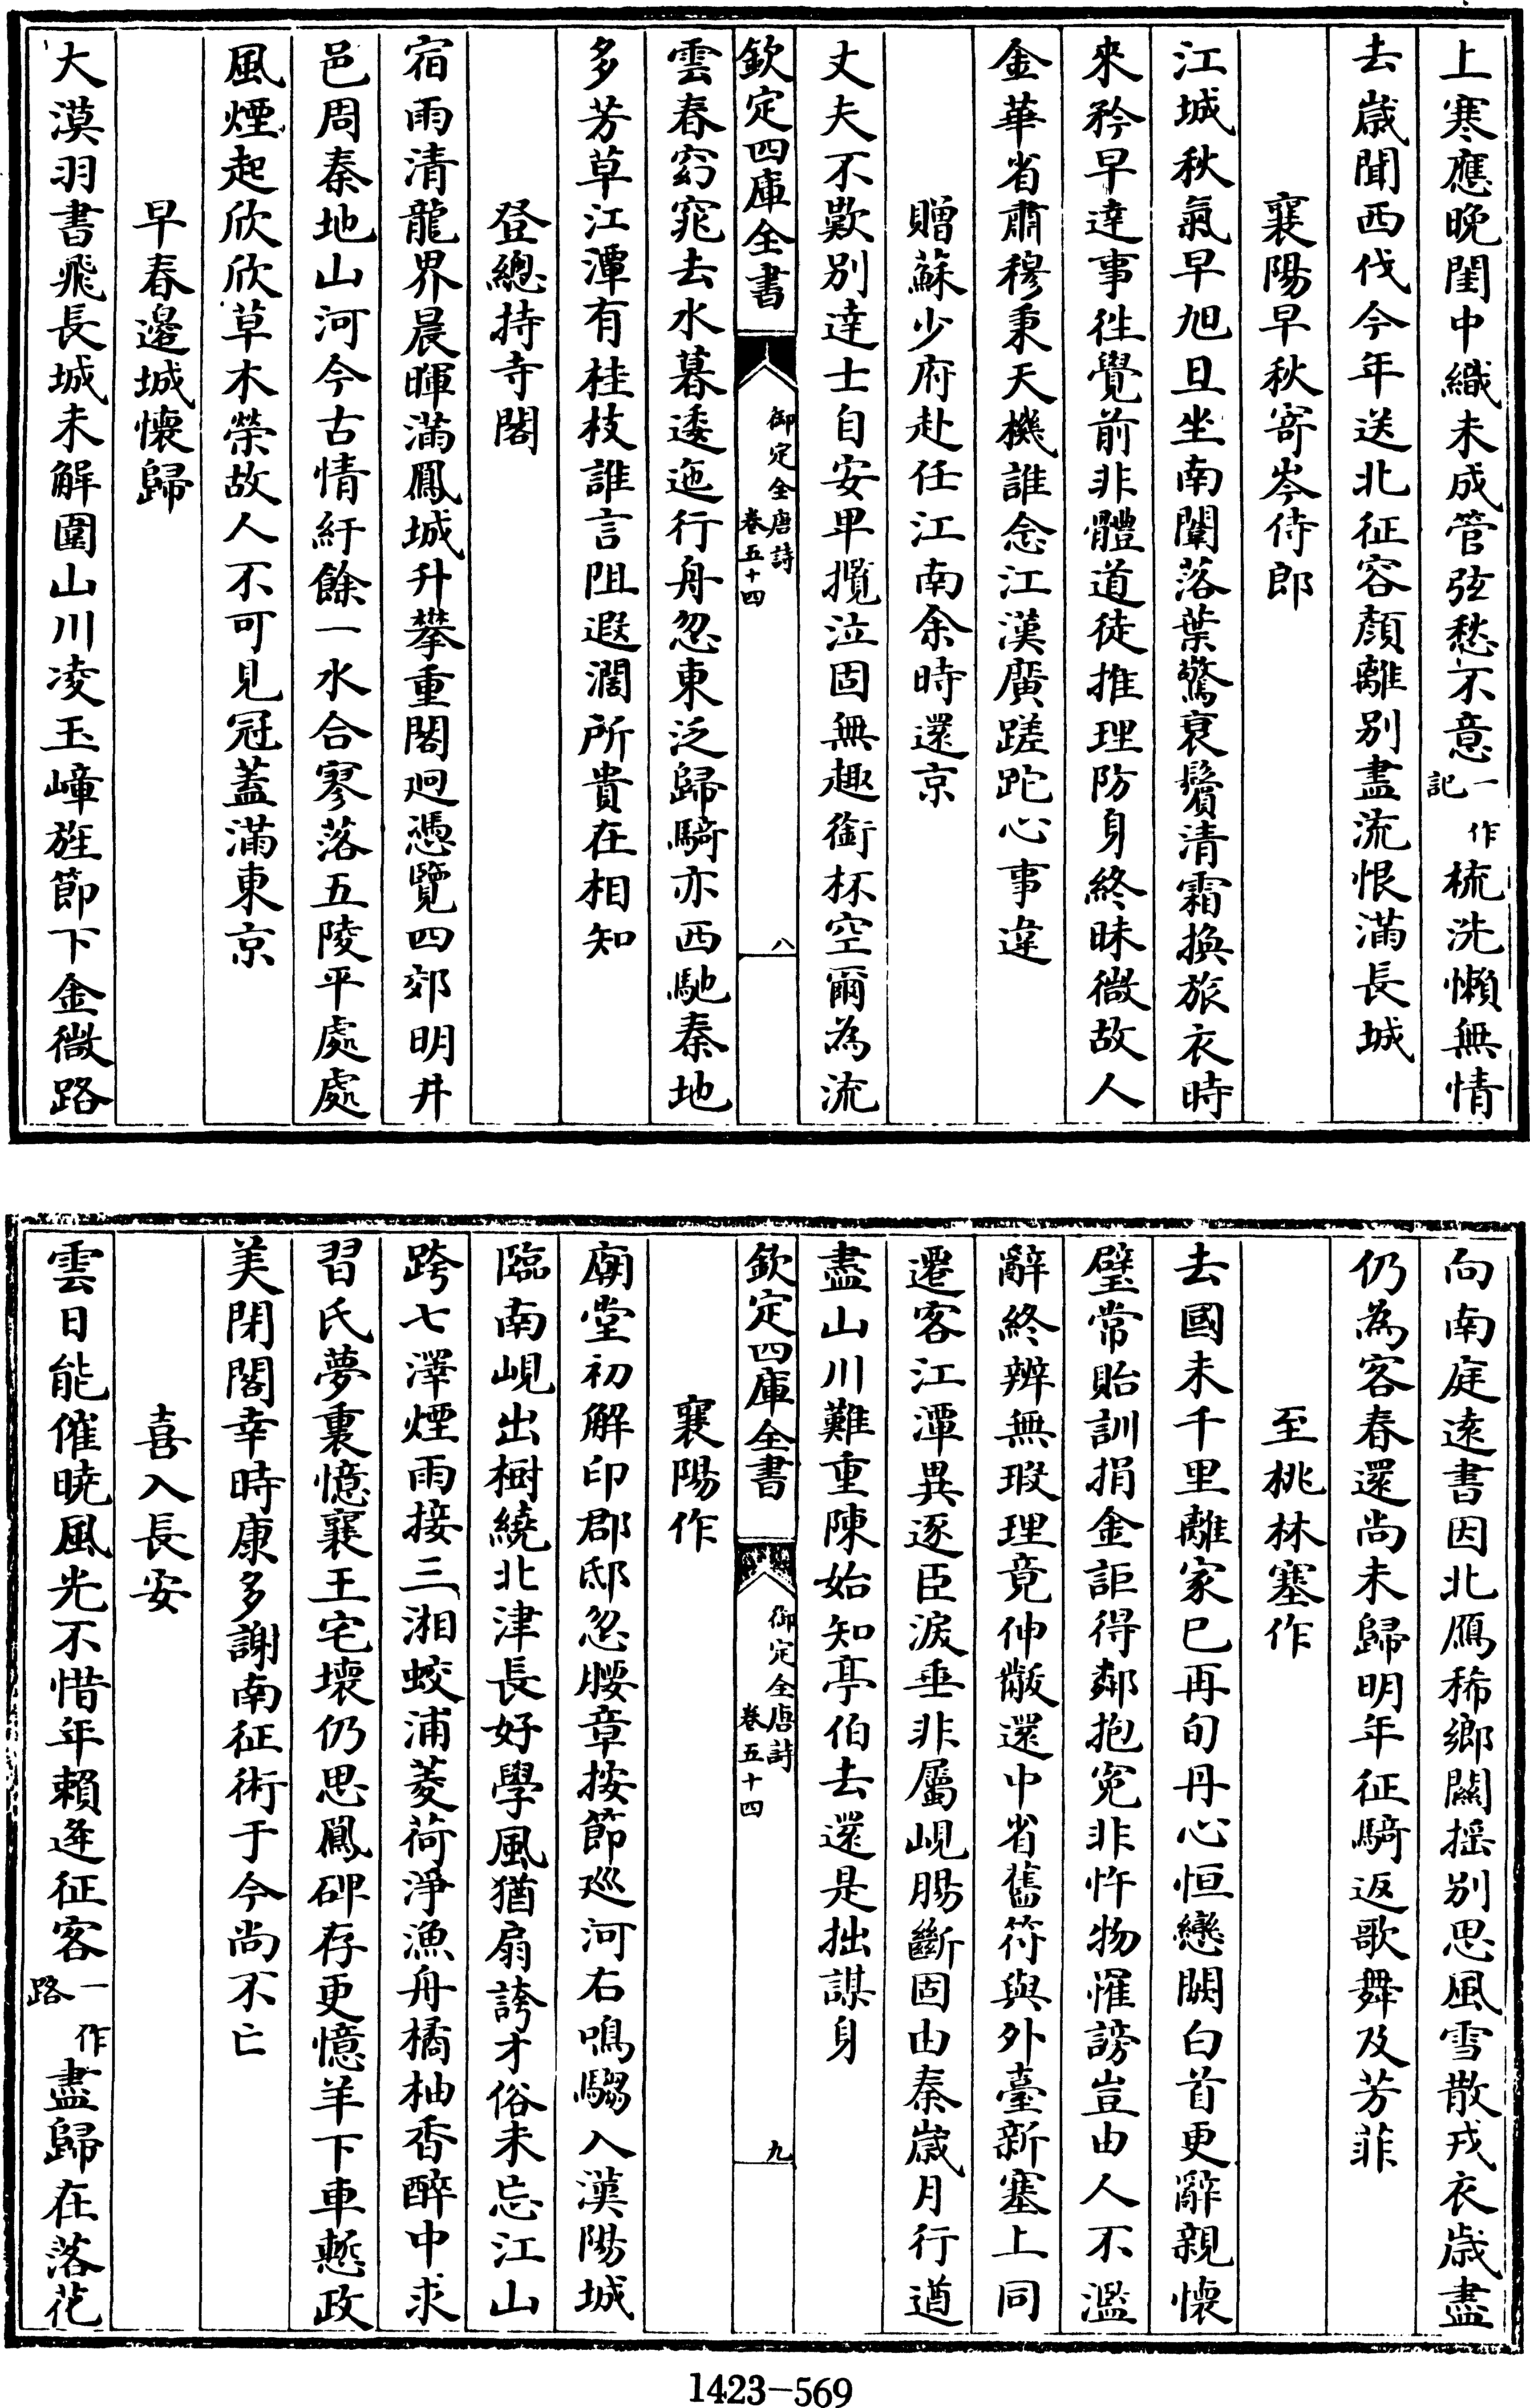 上寒應晚閨中織未成管弦愁不意一作記梳洗懶無情
去歲聞西伐今年送北征容顏離别盡流恨滿長城
襄陽早秋寄岑侍郎
江城秋氣早旭旦坐南闈落葉驚衰鬢清霜換旅衣時
來矜早達事徃覺前非體道徒推理防身終昧微故人
金華省肅穆秉天機誰念江漢廣蹉跎心事違
贈蘇少府赴任江南余時還京
丈夫不歎别達士自安卑攬泣固無趣銜杯空爾為流
欽定四庫全書
御定全唐詩
卷五十四
八
雲春窈窕去水暮逶迤行舟忽東泛歸騎亦西馳秦地
多芳草江潭有桂枝誰言阻遐濶所貴在相知
登總持寺閣
宿雨清龍界晨暉滿鳳城升攀重閣迥憑覽四郊明井
邑周秦地山河今古情紆餘一水合寥落五陵平處處
風煙起欣欣草木榮故人不可見冠蓋滿東京
早春邉城懷歸
大漠羽書飛長城未解圍山川凌玉嶂旌節下金微路
向南庭逺書因北鴈稀鄉關揺别思風雪散戎衣歲盡
仍為客春還尚未歸明年征騎返歌舞及芳菲
至桃林塞作
去國未千里離家已再旬丹心恒戀闕白首更辭親懷
璧常貽訓捐金詎得鄰抱寃非忤物罹謗豈由人不濫
辭終辨無瑕理竟伸黻還中省舊符與外臺新塞上同
遷客江潭異逐臣淚垂非屬峴腸斷固由秦歲月行遒
盡山川難重陳始知亭伯去還是拙謀身
欽定四庫全書
御定全唐詩
卷五十四
九
襄陽作
廟堂初解印郡邸忽腰章按節廵河右鳴騶入漢陽城
臨南峴出樹繞北津長好學風猶扇誇才俗未忘江山
跨七澤煙雨接三湘蛟浦菱荷淨漁舟橘柚香醉中求
習氏夢裏憶襄王宅壊仍思鳳碑存更憶羊下車慙政
美閉閣幸時康多謝南征術于今尚不亡
喜入長安
雲日能催曉風光不惜年賴逢征客一作路盡歸在落花
1423-569